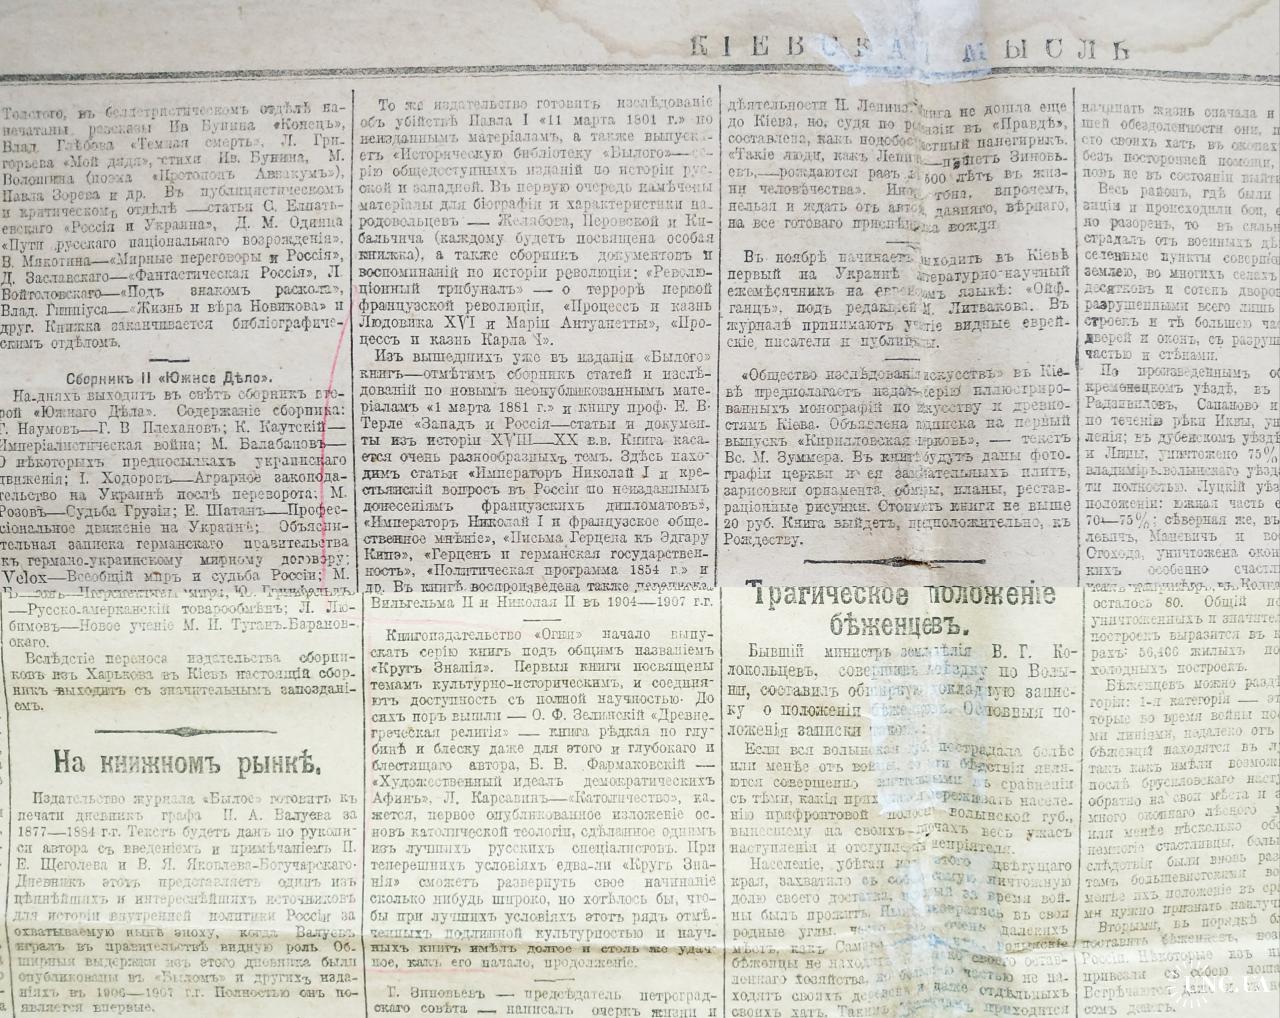 КІЕВСКАЯ МЫСЛЬ
Толстого, въ беллетристическомъ отдѣлѣ на-
печатаны разсказы Ив Бунина «Конецъ»,
Влад Глѣбова «Темная смерть», Л. Гри-
горьева «Мой дядя», стихи Ив. Бунина, М.
Волошина (поэма «Протопопъ Аввакумъ»),
Павла Зорева и др. Въ публицистическомъ
и критическомъ отдѣлѣ —статьи С. Елпать-
евскаго «Россія и Украина», Д. М. Одинца
«Пути русскаго національнаго возрожденія»,
В. Мякотина—«Мирные переговоры и Россія»,
Д. Заславскаго—«Фантастическая Россія», Л.
Войтоловскаго—«Подъ знакомъ раскола»,
Влад. Гиппіуса—«Жизнь и вѣра Новикова» и
друг. Книжка заканчивается библіографиче-
скимъ отдѣломъ.
Сборникъ II «Южное Дѣло».
На-дняхъ выходитъ въ свѣтъ сборникъ вто-
рой «Южнаго Дѣла». Содержаніе сборника:
Г. Наумовъ—Г. В Плехановъ; К. Каутскій—
Имперіалистическая война; М. Балабановъ—
О нѣкоторыхъ предпосылкахъ украинскаго
движенія; І. Ходоровъ—Аграрное законода-
тельство на Украинѣ послѣ переворота; М.
Розовъ—Судьба Грузіи; Е. Шатанъ—Профес-
сіональное движеніе на Украинѣ; Объясни-
тельная записка германскаго правительства
къ германо-украинскому мирному договору;
Velox—Всеобщій миръ и судьба Россіи; М.
—Русско-американскій товарообмѣнъ; Л. Лю-
бимовъ—Новое ученіе М. И. Туганъ-Баранов-
скаго.
Вслѣдствіе переноса издательства сборни-
ковъ изъ Харькова въ Кіевъ настоящій сбор-
никъ выходитъ съ значительнымъ запоздані-
емъ.
На книжномъ рынкѣ.
Издательство журнала «Былое» готовитъ къ
печати дневникъ графа П. А. Валуева за
1877—1884 г.г. Текстъ будетъ данъ по рукопи-
си автора съ введеніемъ и примѣчаніемъ П.
Е. Щеголева и В. Я. Яковлева-Богучарскаго.
Дневникъ этотъ представляетъ одинъ изъ
цѣннѣйшихъ и интереснѣйшихъ источниковъ
для исторіи внутренней политики Россіи за
охватываемую нынѣ эпоху, когда Валуевъ
игралъ въ правительствѣ видную роль Об-
ширныя выдержки изъ этого дневника были
опубликованы въ «Быломъ» и другихъ изда-
ніяхъ въ 1906—1907 г.г. Полностью онъ по-
является впервые.
То же издательство готовитъ изслѣдованіе
объ убійствѣ Павла I «11 марта 1801 г.» по
неизданнымъ матеріаламъ, а также выпуска-
етъ «Историческую библіотеку «Былого»—се-
рію общедоступныхъ изданій по исторіи рус-
ской и западной. Въ первую очередь намѣчены
матеріалы для біографіи и характеристики на-
родовольцевъ — Желябова, Перовской и Ки-
бальчича (каждому будетъ посвящена особая
книжка), а также сборникъ документовъ и
воспоминаній по исторіи революціи; «Револю-
ціонный трибуналъ» — о террорѣ первой
французской революціи, «Процессъ и казнь
Людовика XVI и Маріи Антуанетты», «Про-
цессъ и казнь Карла I».
Изъ вышедшихъ уже въ изданіи «Былого»
книгъ—отмѣтимъ сборникъ статей и изслѣ-
дованій по новымъ неопубликованнымъ мате-
ріаламъ «1 марта 1881 г.» и книгу проф. Е. В.
Терле «Западъ и Россія—статьи и докумен-
ты изъ исторіи XVIII—XX в.в. Книга каса-
ется очень разнообразныхъ темъ. Здѣсь нахо-
димъ статьи «Императоръ Николай I и кре-
стьянскій вопросъ въ Россіи по неизданнымъ
донесеніямъ французскихъ дипломатовъ»,
«Императоръ Николай I и французское обще-
ственное мнѣніе», «Письма Герцена къ Эдгару
Кинэ», «Герценъ и германская государствен-
ность», «Политическая программа 1854 г.» и
др. Въ книгѣ воспроизведена также переписка
Вильгельма II и Николая II въ 1904—1907 г.г.
Книгоиздательство «Огни» начало выпу-
скать серію книгъ подъ общимъ названіемъ
«Кругъ Знанія». Первыя книги посвящены
темамъ культурно-историческимъ, и соединя-
ютъ доступность съ полной научностью. До
сихъ поръ вышли — О. Ф. Зелинскій «Древне-
греческая религія» — книга рѣдкая по глу-
бинѣ и блеску даже для этого и глубокаго и
блестящаго автора, Б. В. Фармаковскій —
«Художественный идеалъ демократическихъ
Афинъ», Л. Карсавинъ—«Католичество», ка-
жется, первое опубликованное изложеніе ос-
новъ католической теологіи, сдѣланное однимъ
изъ лучшихъ русскихъ спеціалистовъ. При
теперешнихъ условіяхъ едва-ли «Кругъ Зна-
нія» сможетъ развернуть свое начинаніе
сколько нибудь широко, но хотѣлось бы, что-
бы при лучшихъ условіяхъ этотъ рядъ отмѣ-
ченныхъ подлинной культурностью и науч-
ныхъ книгъ имѣлъ долгое и столь же удач-
ное, какъ его начало, продолженіе.
Г. Зиновьевъ — предсѣдатель петроград-
скаго совѣта — написалъ очеркъ жизни и
дѣятельности Н. Ленина. Книга не дошла еще
до Кіева, но, судя по рецензіи въ «Правдѣ»,
составлена, какъ подобострастный панегирикъ.
«Такіе люди, какъ Ленинъ,—пишетъ Зиновь-
евъ,—рождаются разъ въ 500 лѣтъ въ жиз-
ни человѣчества». Иного тона, впрочемъ,
нельзя и ждать отъ автора, давняго, вѣрнаго,
на все готоваго приспѣшника вождя
Въ ноябрѣ начинаетъ выходить въ Кіевѣ
первый на Украинѣ литературно-научный
ежемѣсячникъ на еврейскомъ языкѣ: «Ойф-
ганцъ», подъ редакціей М. Литвакова. Въ
журналѣ принимаютъ участіе видные еврей-
скіе, писатели и публицисты.
«Общество изслѣдованія искусствъ» въ Кіе-
вѣ предполагаетъ издать серію иллюстриро-
ванныхъ монографій по искусству и древно-
стямъ Кіева. Объявлена подписка на первый
выпускъ «Кирилловская церковь», — текстъ
Вс. М. Зуммера. Въ книгѣ будутъ даны фото-
графіи церкви и ея замѣчательныхъ плитъ,
зарисовки орнамента, обмѣры, планы, рестав-
раціонные рисунки. Стоимость книги не выше
20 руб. Книга выйдетъ, предположительно, къ
Рождеству.
Трагическое положеніе
бѣженцевъ.
Бывшій министръ земледѣлія В. Г. Ко-
локольцевъ, совершивъ поѣздку по Волы-
ни, составилъ обширную докладную запис-
ку о положеніи бѣженцевъ. Основныя по-
ложенія записки таковы:
Если вся волынская губ. пострадала болѣе
или менѣе отъ войны, то эти бѣдствія явля-
ются совершенно ничтожными въ сравненіи
съ тѣми, какія приходится переживать населе-
нію прифронтовой полосы волынской губ.,
вынесшему на своихъ плечахъ весь ужасъ
наступленія и отступленія непріятеля.
Населеніе, убѣгая изъ этого цвѣтущаго
края, захватило съ собой самую ничтожную
долю своего достатка, за время вой-
ны былъ прожитъ. Нынѣ возвратясь въ свои
родные углы, очень далекихъ
мѣстъ, какъ Самара, волынскіе
бѣженцы не находятъ своего остав-
леннаго хозяйства, частью не на-
ходятъ своихъ деревень и даже отдѣльныхъ
своихъ хатъ. Такимъ приходится
начинать жизнь сначала и
шей обездоленности они,
сто своихъ хатъ въ окопахъ
безъ посторонней помощи,
ловъ не въ состояніи выйти
Весь районъ, гдѣ были
зиціи и происходили бои,
но разоренъ, то въ сильн
страдалъ отъ военныхъ дѣ
селенные пункты соверше
землею, во многихъ селахъ
десятковъ и сотенъ дворов
разрушенными всего лишь
строекъ и тѣ большею час
дверей и оконъ, съ разруш
частью и стѣнами.
По произведеннымъ об
кременецкомъ уѣздѣ, въ
Радзивиловъ, Сапаново и
по теченію рѣки Иквы, ун
ленія; въ дубенскомъ уѣздѣ
и Липы, уничтожено 75%
владиміръ-волынскаго уѣзд
ти полностью. Луцкій уѣзд
положеніи: южная часть е
70—75%; сѣверная же, въ
левичъ, Маневичъ и вос
Огохода, уничтожена окон
кихъ особенно счастли
какъ, напримѣръ, въ Колка
осталось 80. Общій по
уничтоженныхъ и значител
построекъ выразится въ
рахъ: 56,406 жилыхъ по
холодныхъ построекъ.
Бѣженцевъ можно раздѣ
горіи: 1-я категорія — эт
торые во время войны по
ми линіями, недалеко отъ
бѣженцій находятся въ лу
такъ какъ имѣли возмож
послѣ брусиловскаго наст
обратно на свои мѣста и з
много окопнаго лѣсного
или менѣе нѣсколько об
немногіе счастливцы, боль
слѣдствіи были вновь раз
тамъ большевистскими во
менѣе ихъ положеніе въ сра
ми нужно признать наилучш
Вторыми, въ порядкѣ бѣ
поставить бѣженцевъ, воз
Россіи. Нѣкоторые изъ ни
привезли съ собою лоша
Встрѣчаются даже и
сомъ
UNC.UA